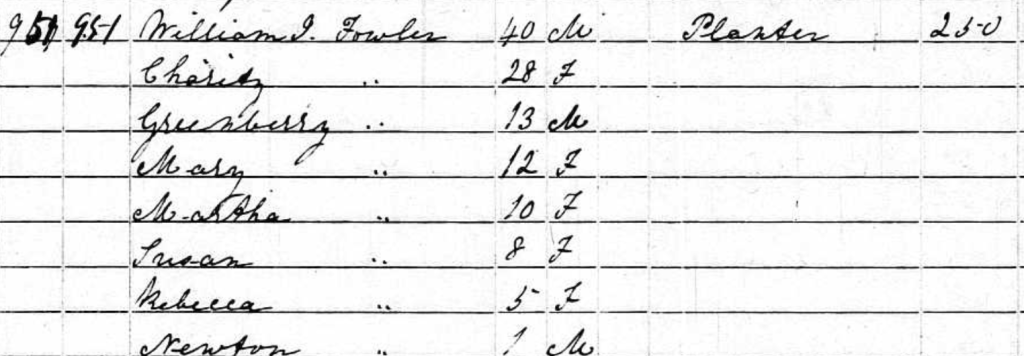 951 951 William J. Fowler 40 M Planter 250
Charity " 28 F
Greenberry " 13 M
Mary " 12 F
Martha " 10 F
Susan " 8 F
Rebecca " 5 F
Newton " 1 M